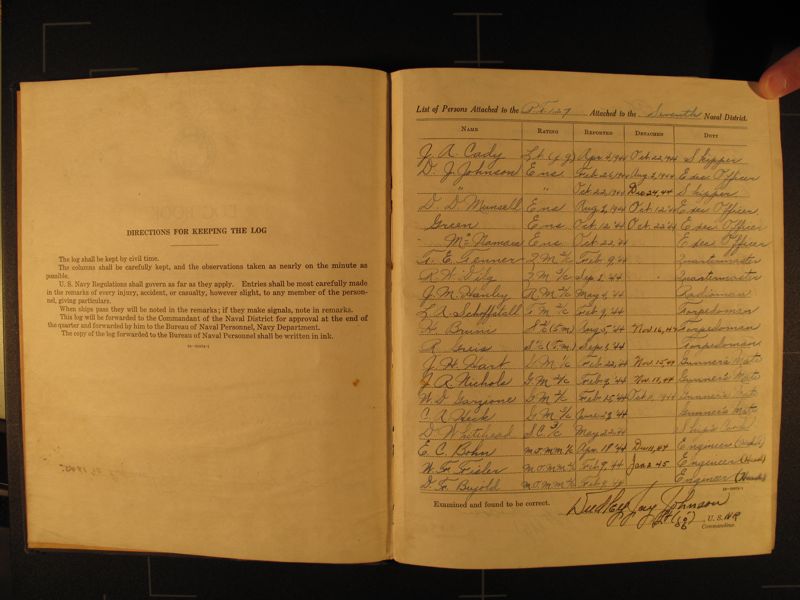 DIRECTIONS FOR KEEPING THE LOG
The log shall be kept by civil time.
The columns shall be carefully kept, and the observations taken as nearly on the minute as
possible.
U. S. Navy Regulations shall govern as far as they apply. Entries shall be most carefully made
in the remarks of every injury, accident, or casualty, however slight, to any member of the person-
nel, giving particulars.
When ships pass they will be noted in the remarks; if they make signals, note in remarks.
This log will be forwarded to the Commandant of the Naval District for approval at the end of
the quarter and forwarded by him to the Bureau of Naval Personnel, Navy Department.
The copy of the log forwarded to the Bureau of Naval Personnel shall be written in ink.
List of Persons Attached to the P.T. 127 Attached to the Seventh Naval District.
NAME RATING REPORTED DETACHED DUTY
J. A. Cady Lt (jg) Apr 2, 1944 Oct 22, 1944 Skipper
D. J. Johnson Ens Feb 26, 1944 Aug 2, 1944 Exec Officer
" " Oct 22, 1944 Dec 24, 44 Skipper
D. D. Munsell Ens Aug 2, 1944 Oct 12 '44 Exec Officer
Green Ens Oct 12 '44 Oct 22 '44 Exec Officer
McNamara Ens Oct 22, '44 Exec Officer
Feb. 9, '44 Quartermaster
R. W. Q M Sep 2, '44 Quartermaster
J. M. Hanley R M May 4, '44 Radioman
L. A. T M Feb 9, '44 Torpedoman
Bruni Aug 5, '44 Nov 16, 44 Torpedoman
R. Sep 8, '44 Torpedoman
J. H. Hart Feb 22, '44 Nov 15, 44 Gunner's Mate
J. R. Nichols G M Feb 9, '44 Nov 18, 44 Gunner's Mate
W. D. G M Feb 15, '44 Oct 11, 1944 Gunner's Mate
C. A. Heck G M June 23, '44 Gunner's Mate
D. Whitehead S C 3/c May 22, 44 Ship's Cook
E. C. Bohn M O M M Apr 18 '44 Dec 11, 44 Engineer
W. F. Fisler M O M M Feb 9, '44 Jan 2 45 Engineer (Head)
D. F. Bujold M O M M Feb 9, '44 Engineer (Head)
Examined and found to be correct.
Dudley Jay Johnson
Lt (jg) U. S. N R
Commanding.